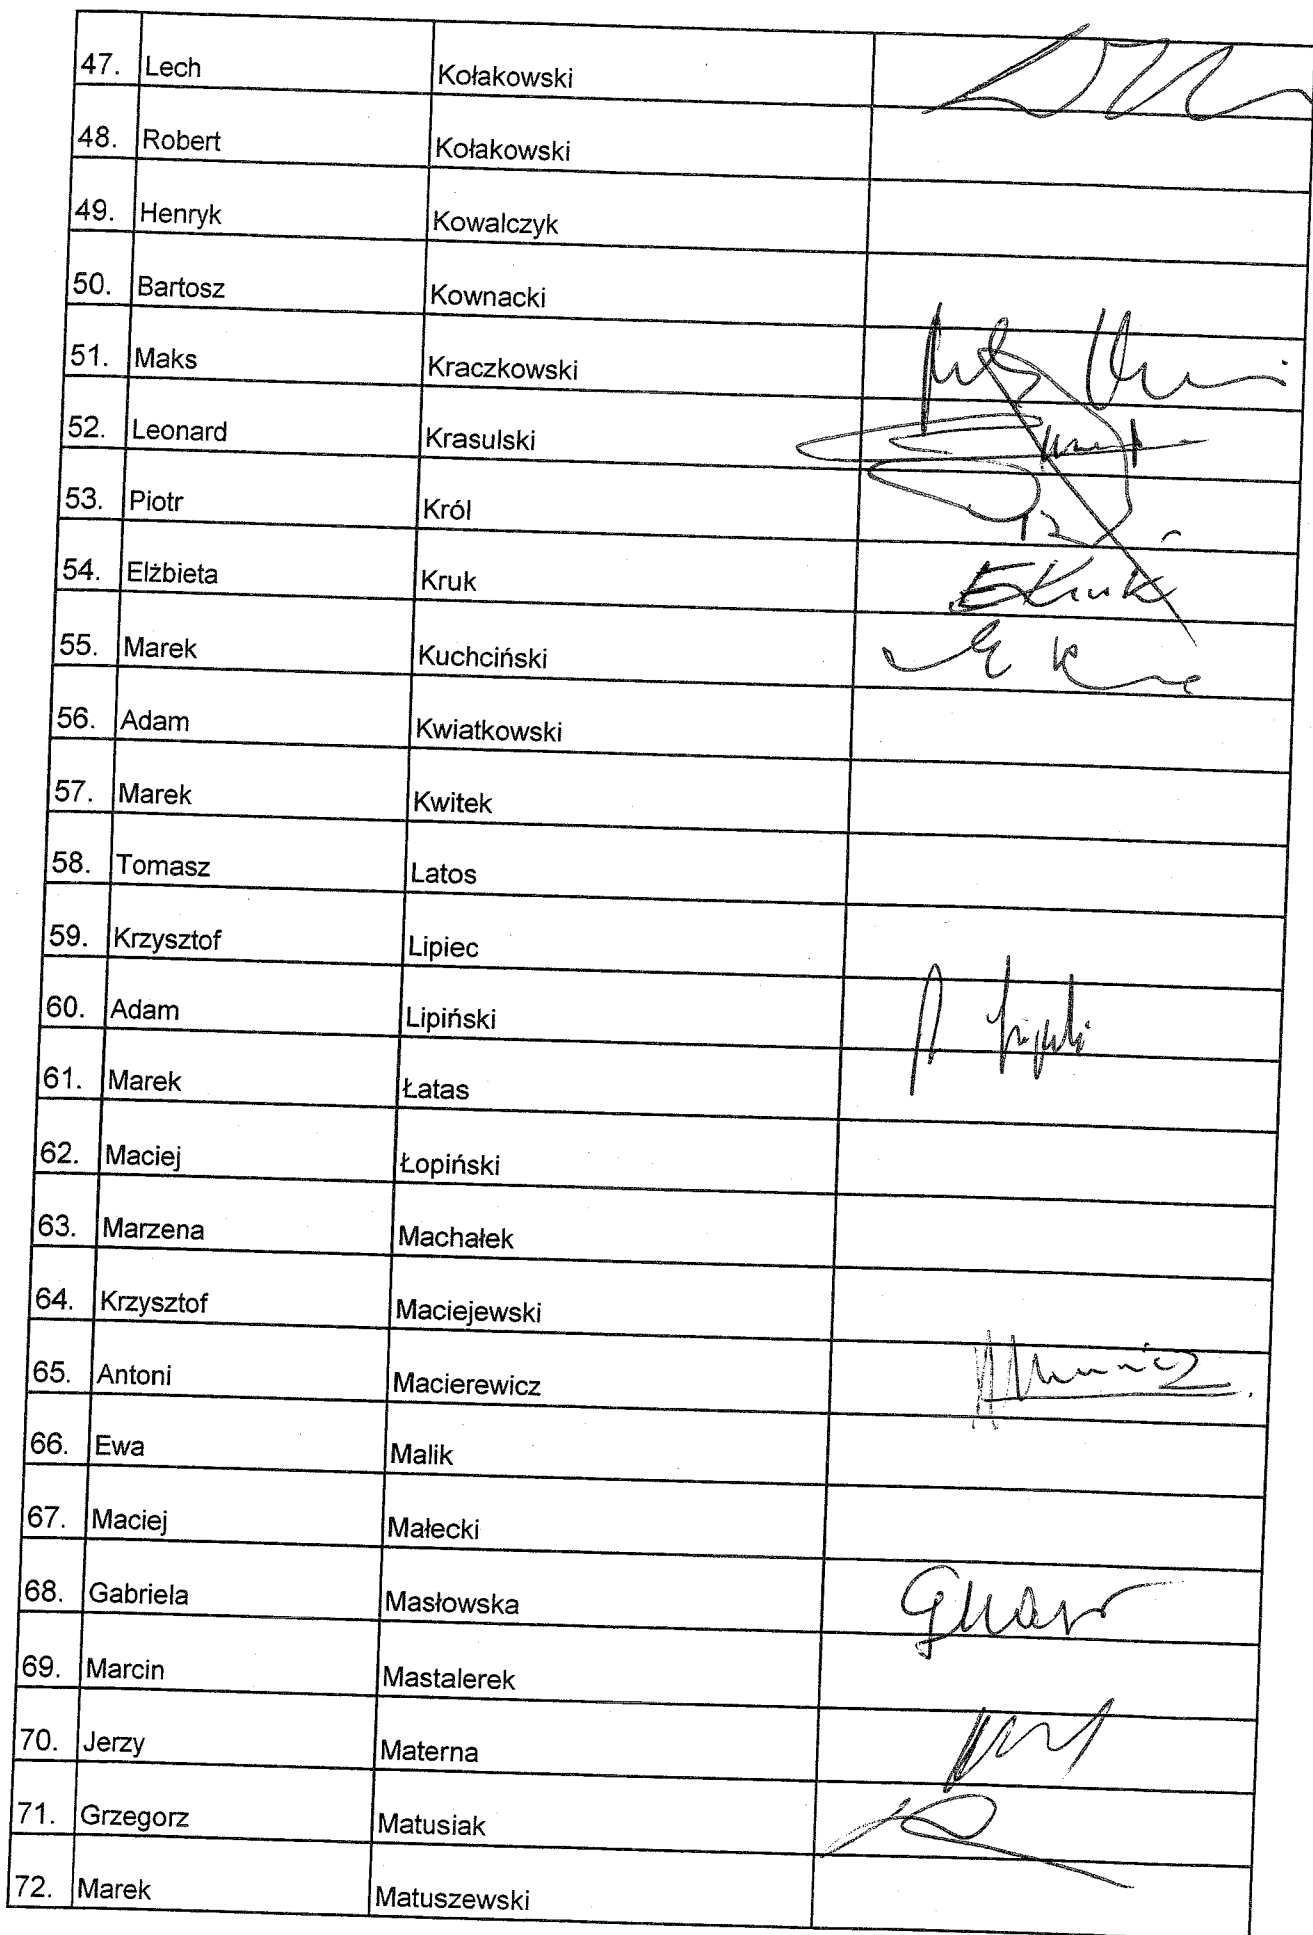 47. Lech Kołakowski
48. Robert Kołakowski
49. Henryk Kowalczyk
50. Bartosz Kownacki
51. Maks Kraczkowski
52. Leonard Krasulski
53. Piotr Król
54. Elżbieta Kruk EKruk
55. Marek Kuchciński
56. Adam Kwiatkowski
57. Marek Kwitek
58. Tomasz Latos
59. Krzysztof Lipiec
60. Adam Lipiński
61. Marek Łatas
62. Maciej Łopiński
63. Marzena Machałek
64. Krzysztof Maciejewski
65. Antoni Macierewicz
66. Ewa Malik
67. Maciej Małecki
68. Gabriela Masłowska
69. Marcin Mastalerek
70. Jerzy Materna
71. Grzegorz Matusiak
72. Marek Matuszewski